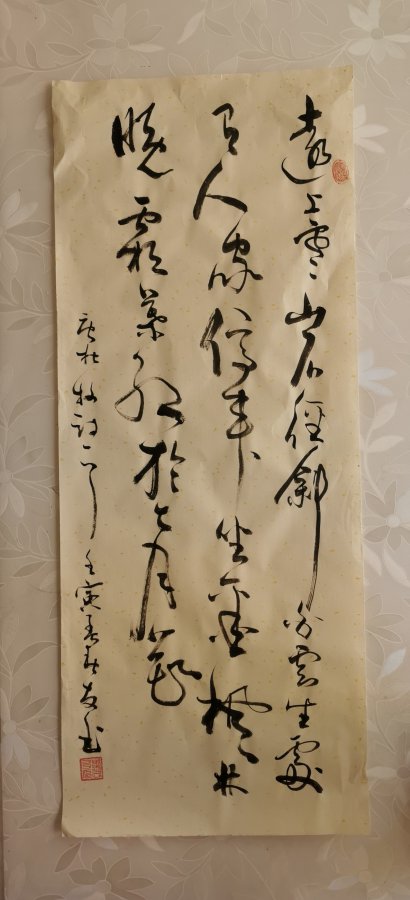 遠上寒山石徑斜白雲生處
有人家停車坐愛楓林
晚霜葉紅於二月花
唐杜牧詩一首 壬寅孟春